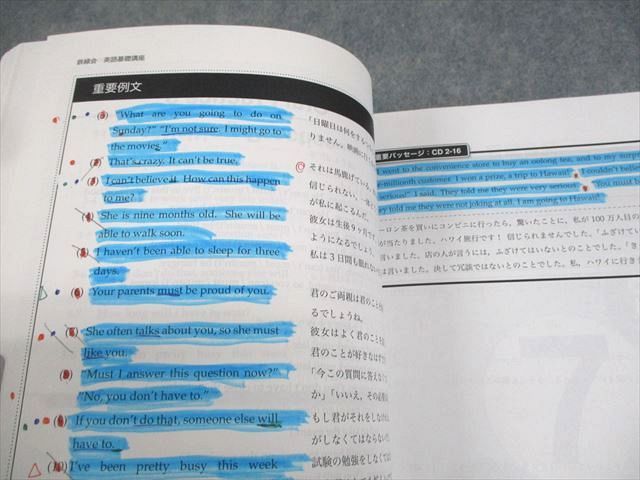 鉄緑会 英語基礎講座
重要例文
"What are you going to do on
Sunday?" "I'm not sure. I might go to
the movies."
That's crazy. It can't be true.
I can't believe it. How can this happen
to me?
She is nine months old. She will be
able to walk soon.
I haven't been able to sleep for three
days.
Your parents must be proud of you.
She often talks about you, so she must
like you.
"Must I answer this question now?"
"No, you don't have to."
If you don't do that, someone else will
have to.
(10) I've been pretty busy this week
「日曜日は何をする
りません。映画に
それは馬鹿げている。
信じられない。
が私に起こるんだ。
彼女は生後9ヶ月で
ようになるでしょう。
私は3日間も眠れない
君のご両親は君のこと
るでしょうね。
彼女はよく君のことを
君のことが好きなはず
「今この質問に答えな
か」「いいえ、その必要
もし君がそれをしなけれ
がしなくてはならない
試験の勉強をしなくて
重要パッセージ：CD 2-16
I went to the convenience store to buy an oolong tea, and to my surp
e-millionth customer. I won a prize, a trip to Hawaii! I couldn't believe
serious!" I said. They told me they were very serious. You must b
ey told me they were not joking at all. I am going to Hawaii!
ーロン茶を買いにコンビニに行ったら、驚いたことに、私が100万人目の
が当たりました。ハワイ旅行です！ 信じられませんでした。「ふざけてい
言いました。店の人が言うには、ふざけてはいないとのことでした。「き
は言いました。決して冗談ではないとのことでした。私、ハワイに行き